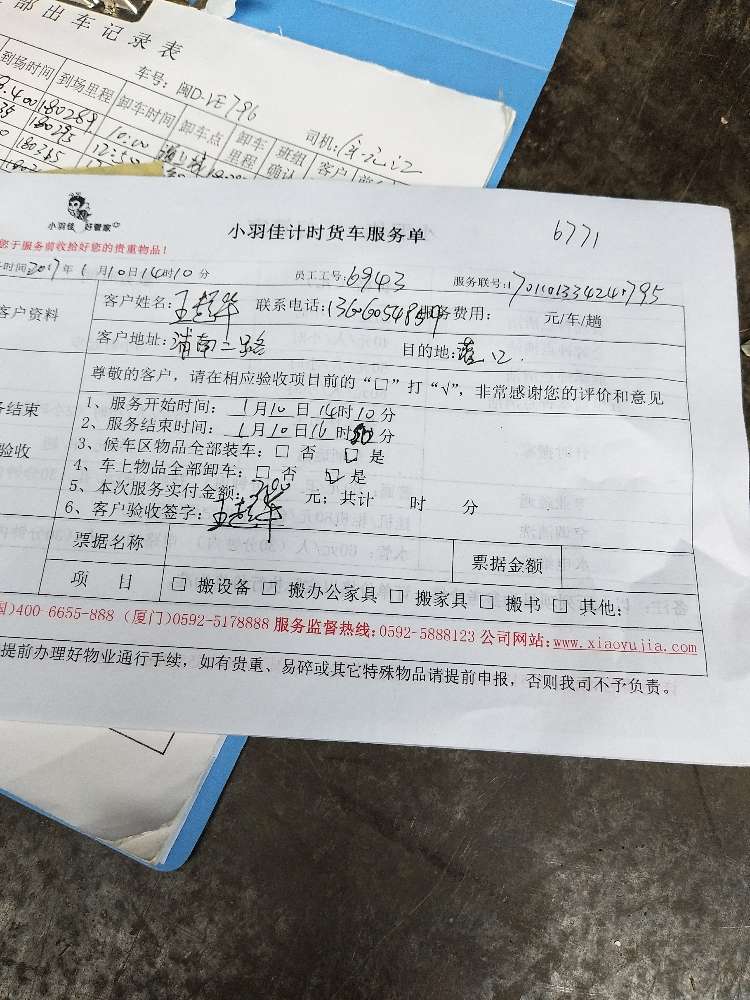 部出车记录表
车号: 闽D·VE796
司机:
到场时间 到场里程 卸车时间 卸车点 卸车里程 班组确认 客户
180289
180295 10:00
180345 12:50
小羽佳 好管家
小羽佳计时货车服务单 6771
您于服务前收给好您的贵重物品!
务时间2017年1月10日14时10分 员工工号:6943 服务联号:170110133424795
客户资料
客户姓名:王 华 联系电话: 服务费用: 元/车/趟
客户地址:浦南二路 目的地:
尊敬的客户,请在相应验收项目前的“□”打“√”,非常感谢您的评价和意见
务结束
验收
1、服务开始时间: 1月10日14时10分
2、服务结束时间: 1月10日16时 分
3、候车区物品全部装车:□ 否 □ 是
4、车上物品全部卸车:□ 否 □ 是
5、本次服务实付金额: 元;共计 时 分
6、客户验收签字:王 华
票据名称 票据金额
项 目 □ 搬设备 □ 搬办公家具 □ 搬家具 □ 搬书 □ 其他:
国)400-6655-888 (厦门)0592-5178888 服务监督热线:0592-5888123 公司网站:www.xiaoyujia.com
提前办理好物业通行手续,如有贵重、易碎或其它特殊物品请提前申报,否则我司不予负责。